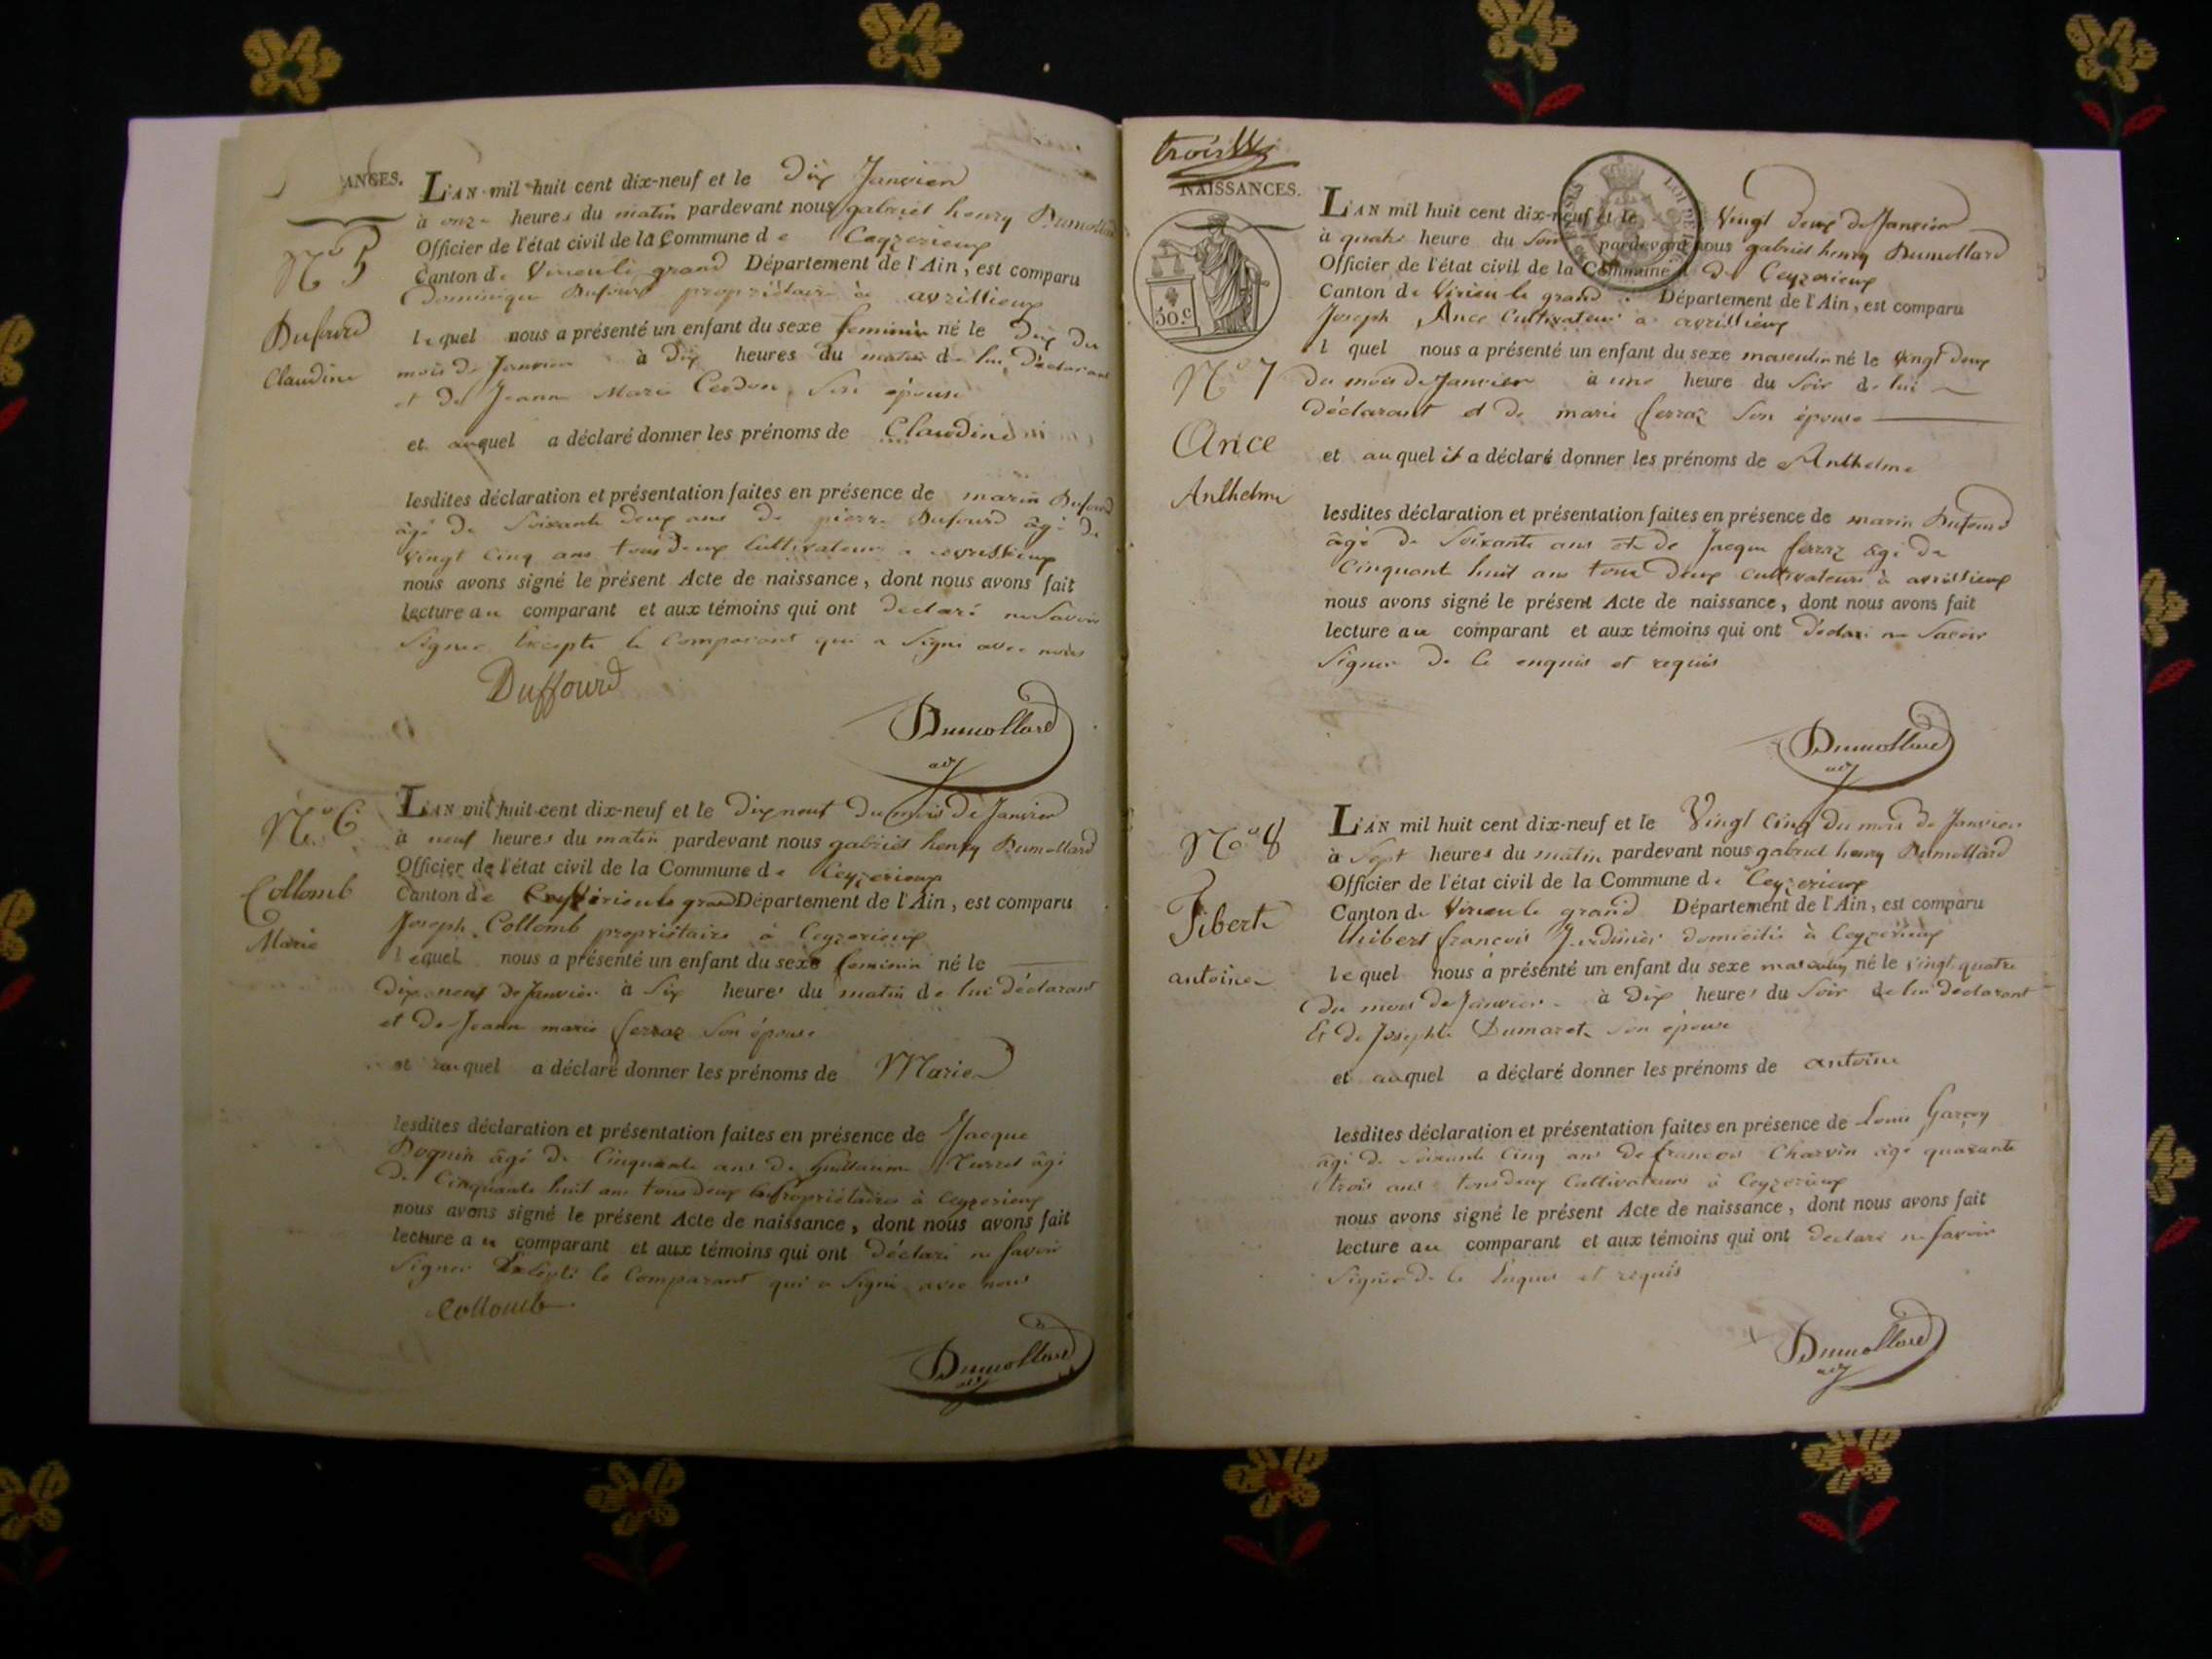 ANCES.
N° 5
Dufourd
Claudine
L'AN mil huit cent dix-neuf et le Dix Janvier
à onze heures du matin pardevant nous gabriel henry Dumollard
Officier de l'état civil de la Commune de Ceyzerieux
Canton de Virieu le grand Département de l'Ain, est comparu
Dominique Dufourd propriétaire à avrissieux
lequel nous a présenté un enfant du sexe feminin né le dix du
mois de Janvier à Dix heures du matin de lui Déclarant
et de Jeanne Marie Cerdon son épouse
et auquel a déclaré donner les prénoms de Claudine
lesdites déclaration et présentation faites en présence de marin Dufourd
âgé de Soixante deux ans de pierre Dufourd âgé de
vingt cinq ans tous deux Cultivateurs a avrissieux
nous avons signé le présent Acte de naissance, dont nous avons fait
lecture au comparant et aux témoins qui ont declaré ne Savoir
Signer Excepté le Comparant qui a Signé avec nous
Duffourd
Dumollard
adj
N° 6
Collomb
Marie
L'AN mil huit cent dix-neuf et le Dix neuf Du mois De Janvier
à neuf heures du matin pardevant nous gabriel henry Dumollard
Officier de l'état civil de la Commune de Ceyzerieux
Canton de Virieu le grand Département de l'Ain, est comparu
Joseph Collomb propriétaire à Ceyzerieux
lequel nous a présenté un enfant du sexe feminin né le
Dix neuf De Janvier à Six heures du matin de lui déclarant
et De Jeanne marie ferraz Son épouse
et auquel a déclaré donner les prénoms de Marie
lesdites déclaration et présentation faites en présence de Jacque
Doquin âgé De Cinquante ans De Guillaume âgé
De Cinquante huit ans tous deux propriétaires à Ceyzerieux
nous avons signé le présent Acte de naissance, dont nous avons fait
lecture au comparant et aux témoins qui ont déclaré ne Savoir
Signer Excepté le Comparant qui a Signé avec nous
Collomb
Dumollard
adj
trois
NAISSANCES.
50.c
N° 7
Ance
Anthelme
L'AN mil huit cent dix-neuf et le Vingt deux De Janvier
à quatre heure du Soir pardevant nous gabriel henry Dumollard
Officier de l'état civil de la Commune de Ceyzerieux
Canton de Virieu le grand Département de l'Ain, est comparu
Joseph Ance Cultivateur à avrissieux
lequel nous a présenté un enfant du sexe masculin né le vingt deux
du mois de Janvier à une heure du Soir de lui
déclarant et de marie ferraz Son épouse
et auquel il a déclaré donner les prénoms de Anthelme
lesdites déclaration et présentation faites en présence de marin Dufourd
âgé De Soixante ans et de Jacque ferraz âgé De
Cinquante huit ans tous Deux cultivateurs à avrissieux
nous avons signé le présent Acte de naissance, dont nous avons fait
lecture au comparant et aux témoins qui ont déclaré ne Savoir
Signer De Ce enquis et requis
Dumollard
adj
N° 8
antoine
L'AN mil huit cent dix-neuf et le Vingt Cinq Du mois De Janvier
à Sept heures du matin pardevant nous gabriel henry Dumollard
Officier de l'état civil de la Commune de Ceyzerieux
Canton de Virieu le grand Département de l'Ain, est comparu
françois domicilié à Ceyzerieux
lequel nous a présenté un enfant du sexe masculin né le vingt quatre
du mois De Janvier à Dix heures du Soir de lui déclarant
Et de Josephte Dumaret Son épouse
et auquel a déclaré donner les prénoms de antoine
lesdites déclaration et présentation faites en présence de Louis
âgé de Soixante Cinq ans De françois Charvin âgé quarante
trois ans tous deux Cultivateurs à Ceyzerieux
nous avons signé le présent Acte de naissance, dont nous avons fait
lecture au comparant et aux témoins qui ont declaré ne Savoir
Signer De Ce Enquis et requis
Dumollard
adj